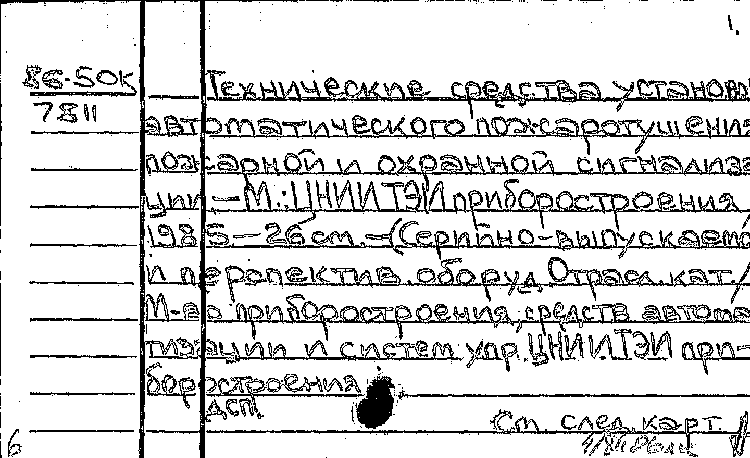 1.
86-50к
7811
Технические средства установ
автоматического пожаротушения
пожарной и охранной сигнализа
ции.—М.: ЦНИИТЭИ приборостроения
1985—26 см.—(Серийно-выпускаемо
и перспектив. оборуд. Отрасл. кат. /
М-во приборостроения, средств автома
тизации и систем упр. ЦНИИТЭИ при-
боростроения
ДСП.
См. след. карт.
6